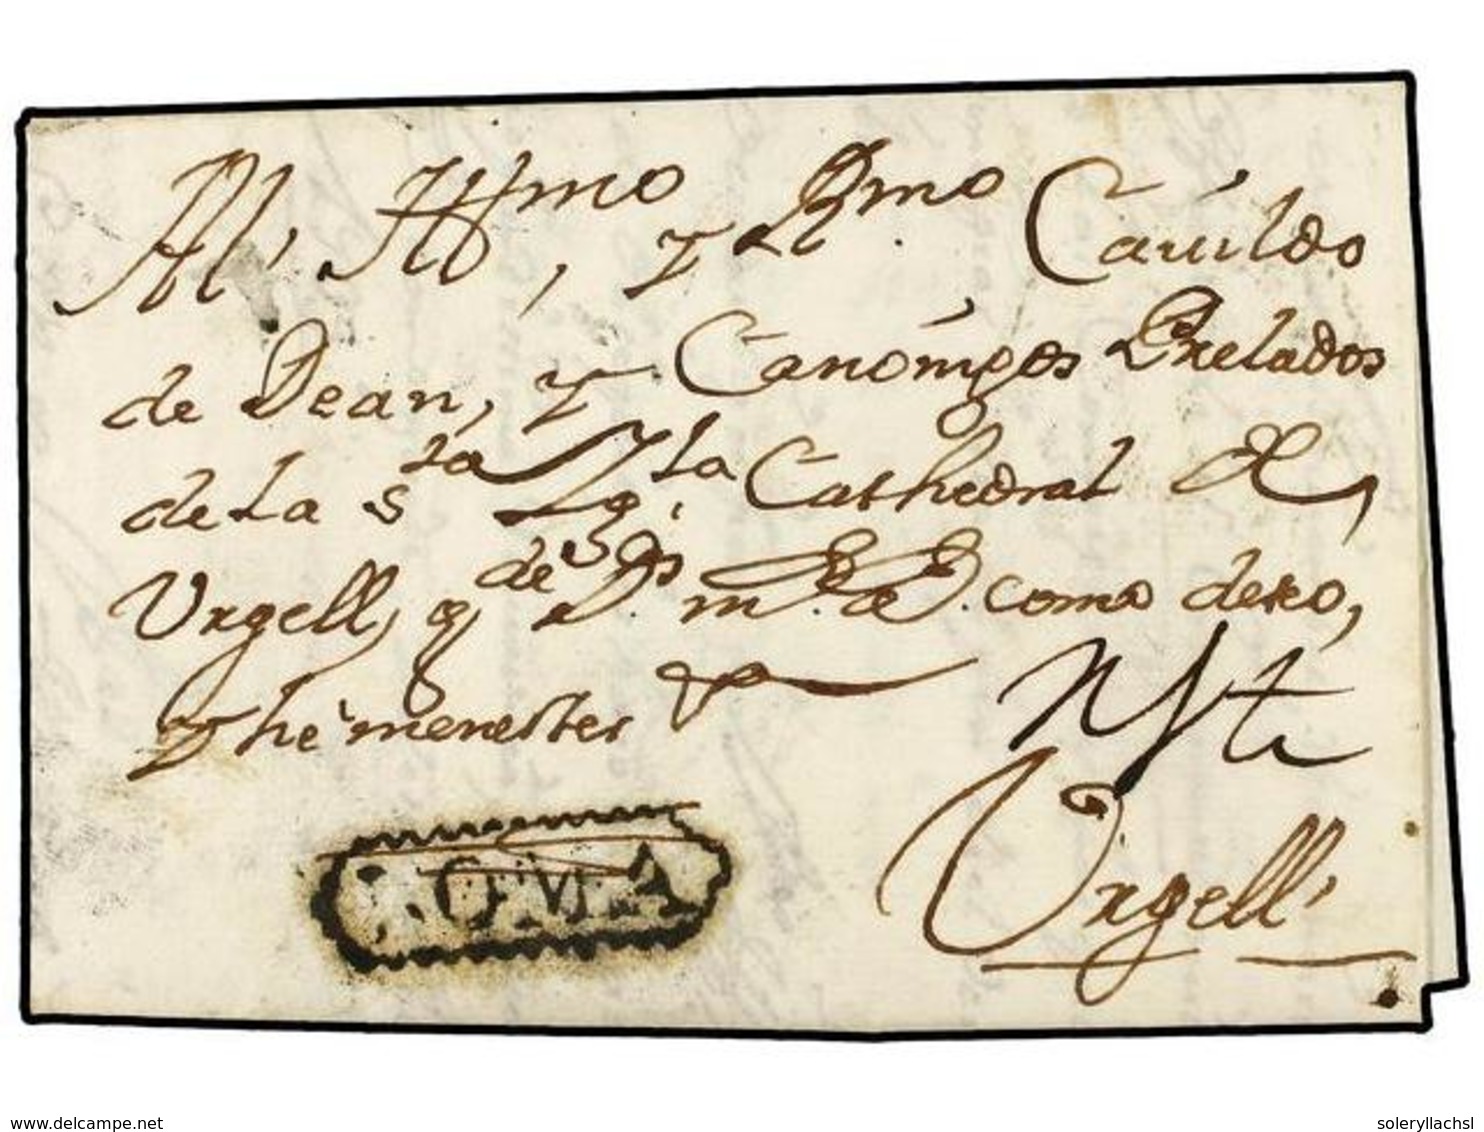 Al Yllmo, y Rmo Cavildo
de Dean, y Canónigos Prelados
de la Sta Ygla Cathedral de,
Urgell, q de Ds m. a. como deseo,
y he menester
Urgell
ROMA
www.delcampe.net
soleryllachsl